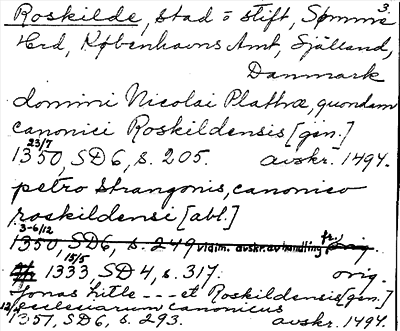 3.
Roskilde, stad o stift, Sømme
Hrd, Københavns Amt, Själland,
Danmark
domini Nicolai Plathæ, quondam
canonici Roskildensis [gen.]
23/7
1350, SD6, s. 205. avskr. 1494.
petro Strangonis, canonico
roskildensi [abl.]
3-6/12
1350 SD6, s. 249 vidim. avskr. av handling fr. orig.
15/5
1333, SD4, s. 317. orig.
Jonas Litle --- et Roskildensis [gen]
ecclesiarum canonicus
12/1
1351, SD6, s. 293. avskr. 1494.